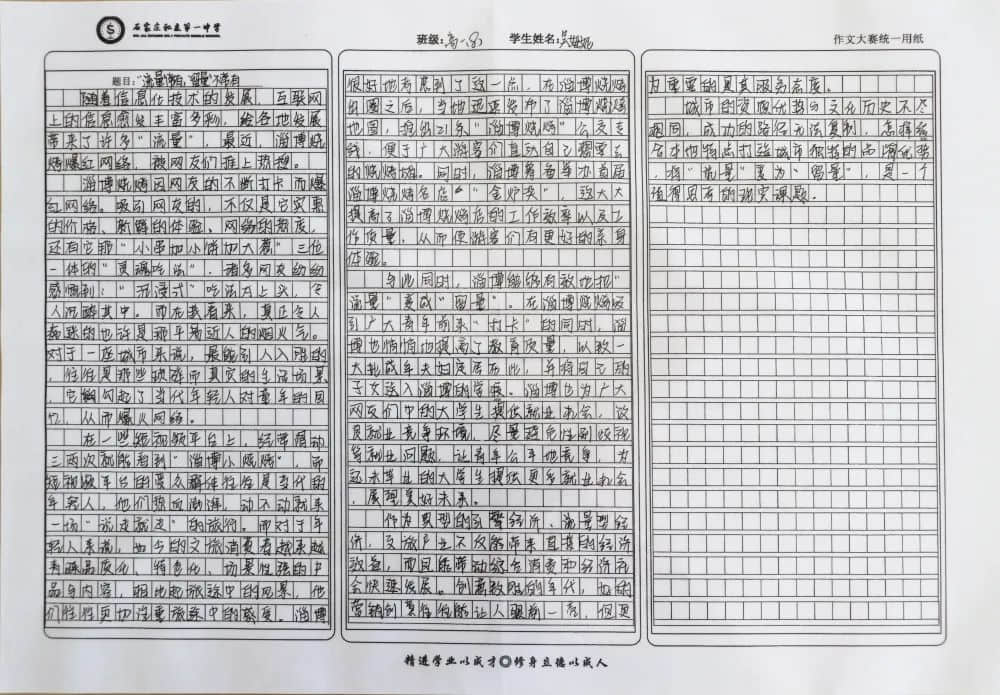 石家庄私立第一中学
班级:高一8) 学生姓名:吴
作文大赛统一用纸
题目:"流量"常有,"留量"不常有
随着信息化技术的发展,互联网
上的信息愈发丰富多彩,给各地发展
带来了许多"流量"。最近,淄博烧
烤爆红网络,被网友们推上热搜。
淄博烧烤因网友的不断打卡而爆
红网络。吸引网友的,不仅是它实惠
的价格、新鲜的体验、网络的热度,
还有它那"小串加小饼加大葱"三位
一体的"灵魂吃法",诸多网友纷纷
感慨到:"沉浸式"吃法太上头,令
人沉醉其中。而在我看来,真正令人
着迷的也许是那平易近人的烟火气。
对于一座城市来说,最能引人入胜的
,往往是那些琐碎而真实的生活场景
,它勾起了当代年轻人对童年的回
忆,从而爆火网络。
在一些短视频平台上,经常滑动
三两次就能看到"淄博小烧烤",而
短视频平台的受众群体往往是当代的
年轻人,他们热血澎湃,动不动就来
一场"说走就走"的旅行。而对于年
轻人来说,如今的文旅消费者越来越
青睐品质化、特色化、场景性强的产
品与内容,相比起旅途中的风景,他
们往往更加注重旅途中的感受。淄博
很好地考虑到了这一点,在淄博烧烤
出圈之后,当地迅速发布了淄博烧烤
地图,推出21条"淄博烧烤"公交专
线,便于广大游客们直达自己想要去
的烧烤场。同时,淄博筹备举办首届
淄博烧烤名店"金炉奖",这大大
提高了淄博烧烤店的工作效率以及工
作质量,从而使游客们有更好的亲身
体验。
与此同时,淄博能够有效地把"
流量"变成"留量"。在淄博烧烤吸
引广大青年前来"打卡"的同时,淄
博也悄悄地提高了教育质量,以致一
大批成年夫妇定居于此,并将自己的
子女送入淄博的学校。淄博也为广大
网友们中的大学生提供就业机会,改
良就业竞争环境,尽量避免性别歧视
等就业问题,让青年公平地竞争,为
还未毕业的大学生提供更多就业机会
,展望美好未来。
作为典型的经济、流量型经
济,文旅产业不仅能带来直接的经济
效益,而且能带动综合消费和经济社
会快速发展。创意致胜的年代,如的
营销创意往往能让人眼前一亮,但更
为重要的是其服务态度。
城市的资源优势与文化历史不尽
相同,成功的路径无法复制,怎样结
合本地特点打造城市独特的品牌优势
,将"流量"变为"留量",是一个
值得思考的现实课题。
精进学业以成才 修身立德以成人